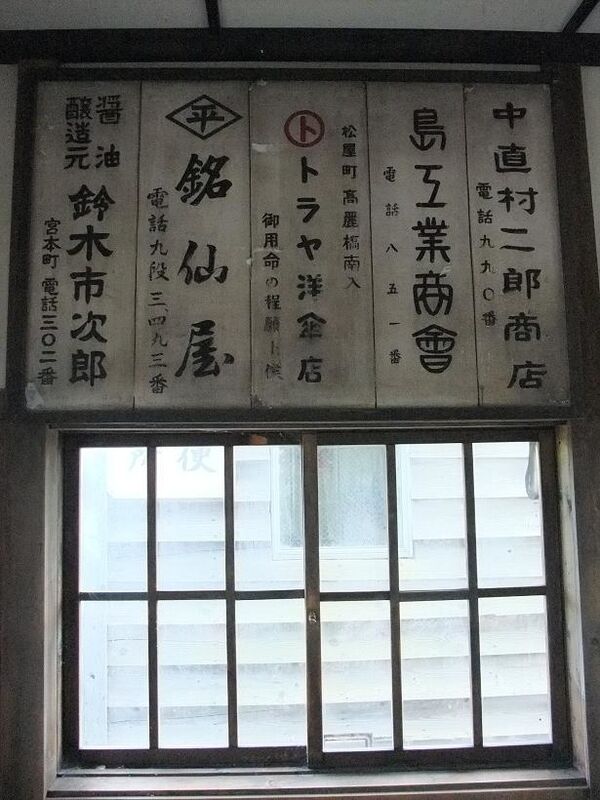 中直村二郎商店
電話九九〇番
島工業商會
電話八五一番
松屋町高麗橋南入
ト
トラヤ洋傘店
御用命の程願上候
平
銘仙屋
電話九段三、四九三番
醤油
醸造元
鈴木市次郎
宮本町 電話三〇二番
便所